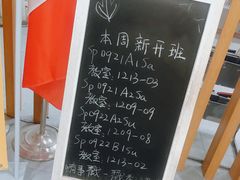 本周新开班
Sp0921A1Sa
教室:1213-03
Sp0921A2Sa
教室:1209-09
Sp0922A2Sa
教室:1209-08
Sp0922B1Sa
教室:1213-02